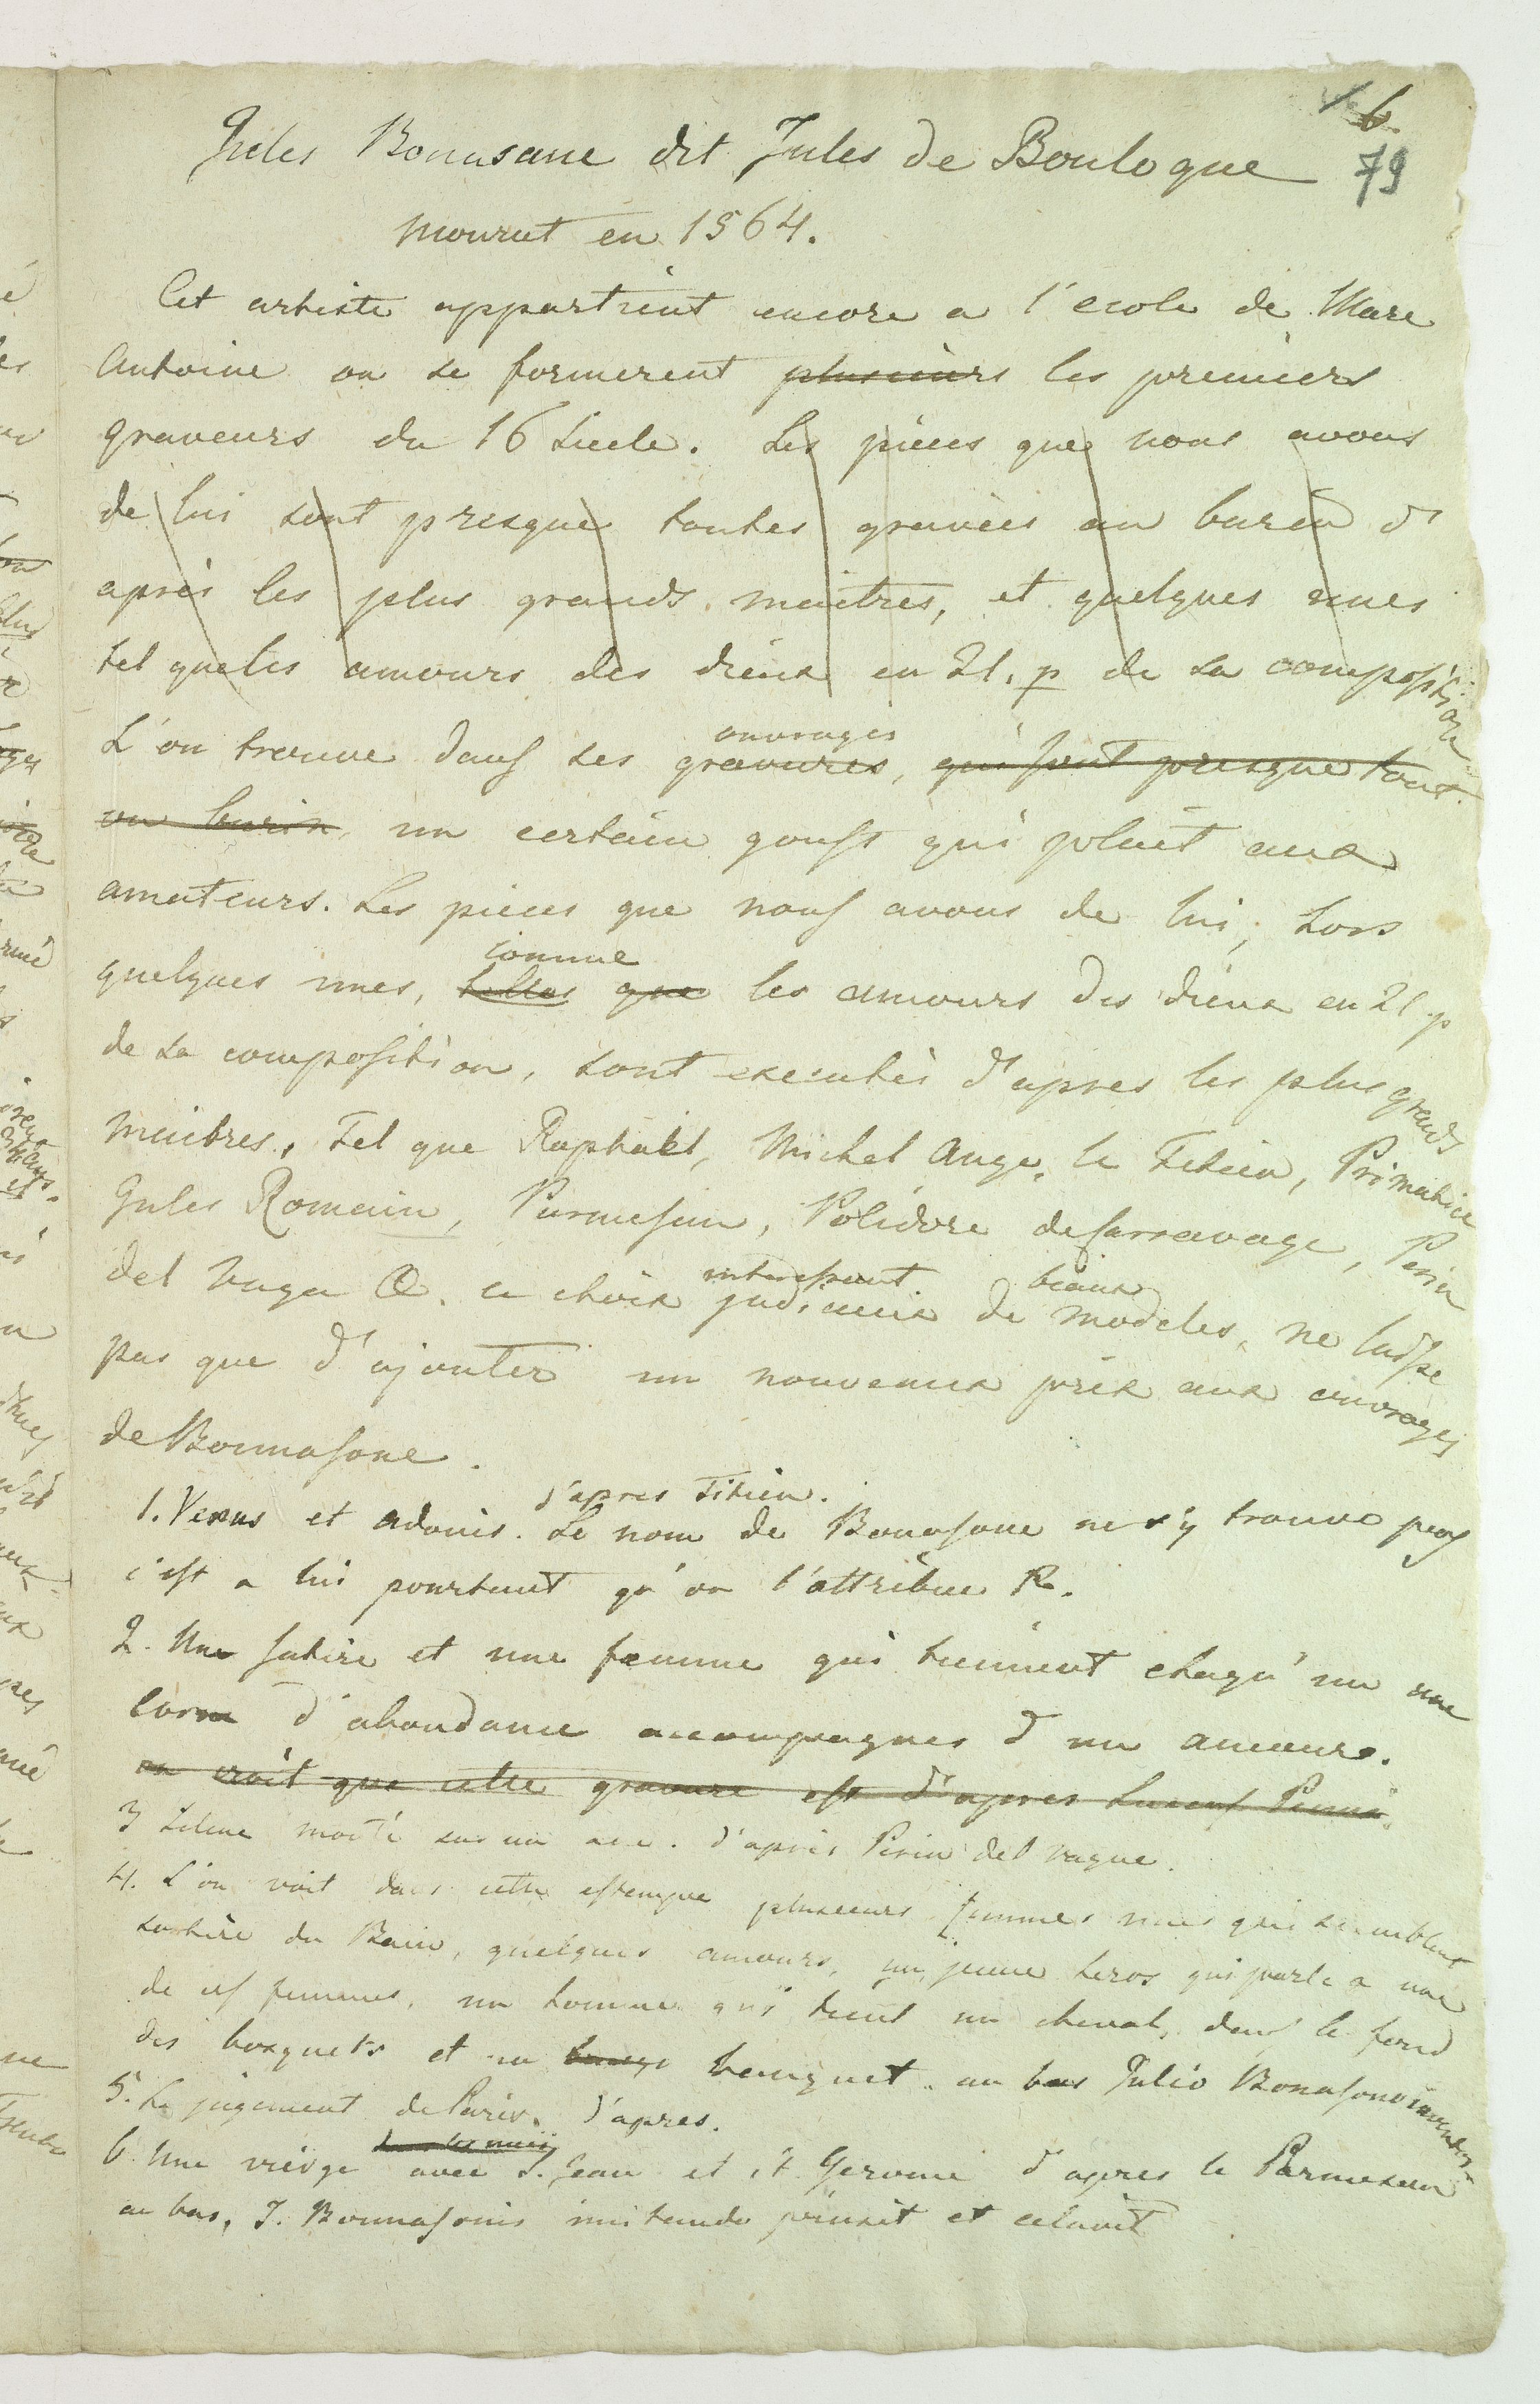 6.
79
Jules Bonasane dit Jules de Bouloque
mourut en 1564.
Cet artiste appartient encore a l'ecole de Marc
Antoine ou se formerent plusieurs les premiers
graveurs du 16 siecle. Les pieces que nous avons
de lui sont presque toutes gravées au burin d'
après les plus grands maitres, et quelques unes
tel que les amours des dieux en 21. p de sa composition
L'on trouve dans ses gravures, qui sont presque tout
ouvrages
au burin un certain goust qui plait aux
amateurs. Les pieces que nous avons de lui, hors
quelques unes, telles que les amours des dieux en 21 p
comme
de sa composition, sont executés d'apres les plus grands
maitres, Tel que Raphaël, Michel Ange, le Titien, Primatice
Jules Romain, Parmesan, Polidore de Carravage, Perin
del Vaga &. ce choix judicieux de modeles, ne laisse
interessant beaux
pas que d'ajouter un nouveaux prix aux ouvrages
de Bonnasone.
1. Venus et adonis. Le nom de Bonasone ne s'y trouve pas
d'apres Titien.
c'est a lui pourtant qu'on l'attribue R.
2. Un Satire et une femme qui tiennent chaqu'un une
corne d'abondance accompagnes d'un amours.
on croit que cette gravure est d'apres Lucas Penni.
3 Silene monté sur un ane. d'après Perin del vague.
4. L'on voit dans cette estampe plusieurs femmes nues qui semblent
sortire du Bain, quelques amours, un jeune heros qui parle a une
de ces femmes, un homme qui tient un cheval, dans le fond
des bosquets et un banqu banquet. au bas Julio Bonasono inventore
5. Le jugement de Paris. d'apres.
6. Une vierge avec S. Jean et St. Jerome d'apres le Parmesan
au bas, J. Bonnasonis imitando pinxit et celavit